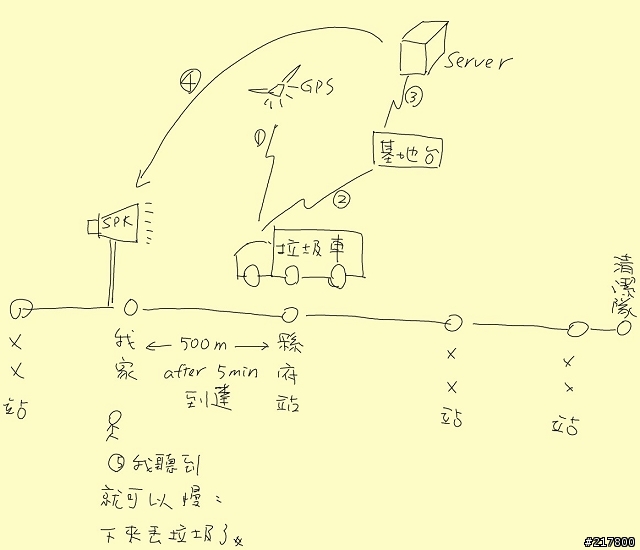 Server
④
GPS
①
③
基地台
②
SPK
垃圾車
清潔隊
我家
← 500m →
after 5min
到達
縣府站
XX站
XX站
XX站
⑤我聽到
就可以慢:
下來丟垃圾了。
#217800